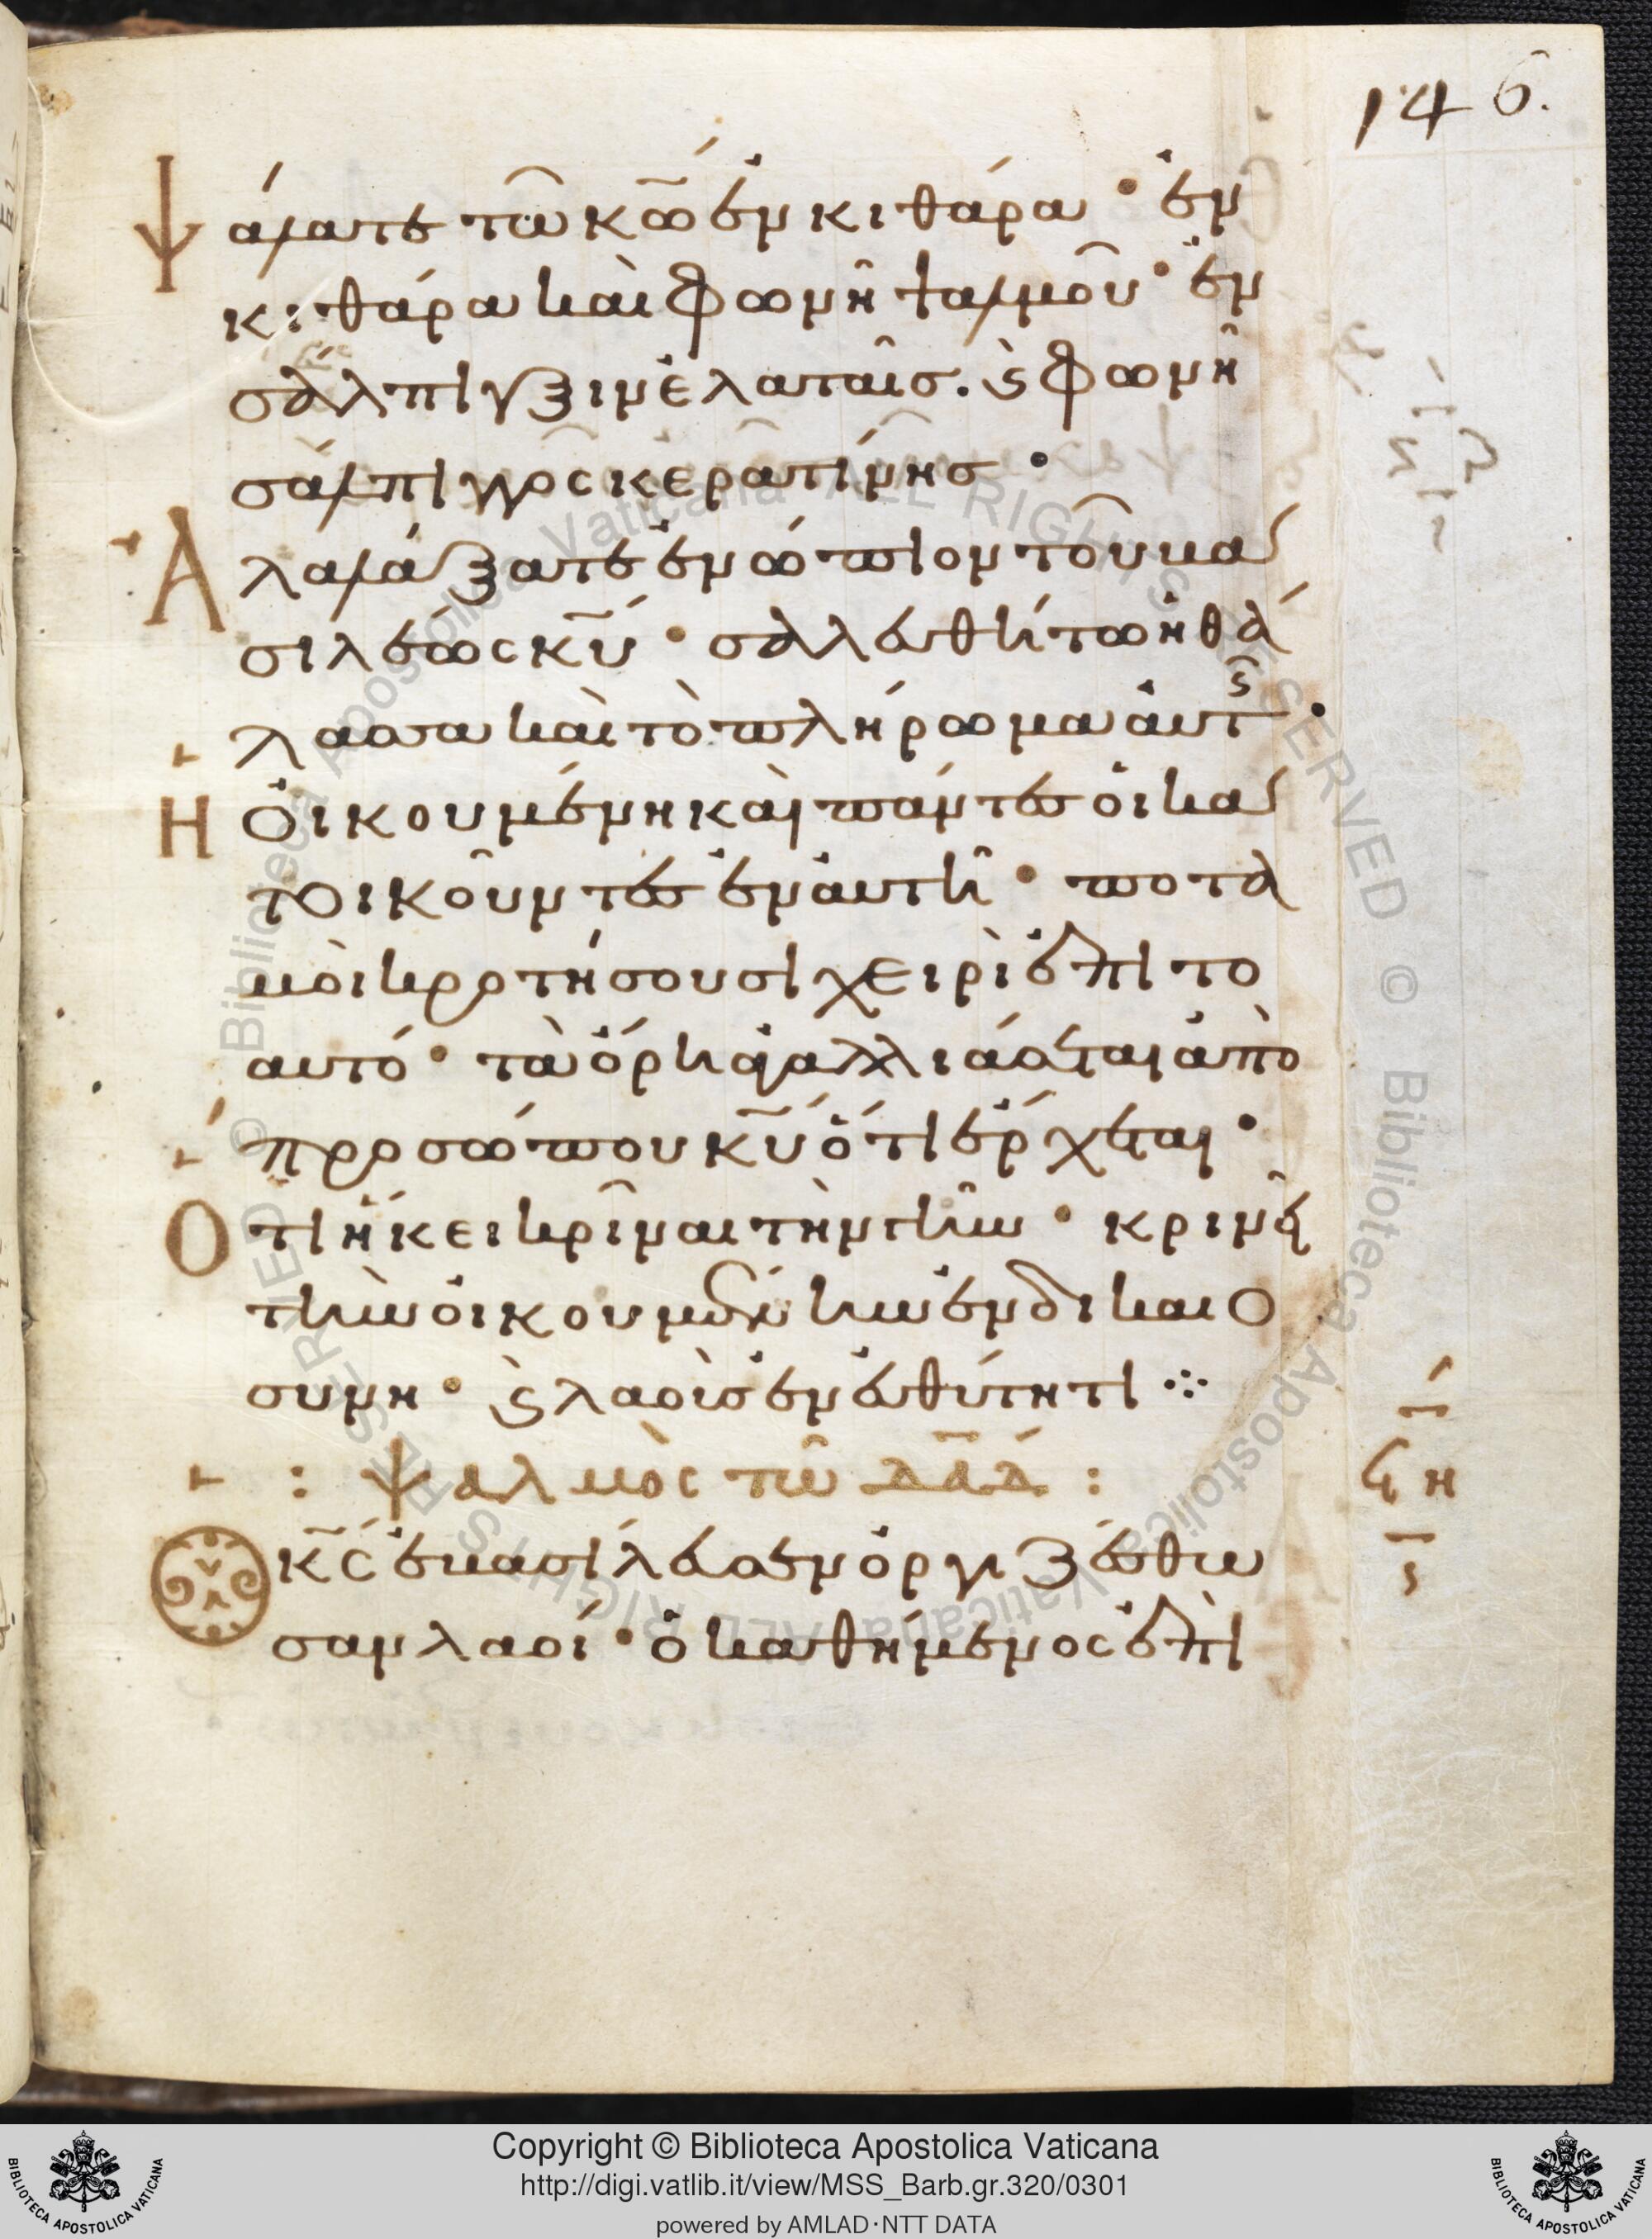 146.
Ψάλατε τῶ κῶ ἐν κιθάρα · ἐν
κιθάρα καὶ φωνῆ ψαλμοῦ · ἐν
σάλπιγξιν ἐλαταῖσ. ϗ φωνῆ
σάλπιγγος κερατίνησ ·
Ἀλαλάξατε ἐνώπιον τοῦ βα
σιλέως κῡ · σαλευθήτω ἡ θά
λασσα καὶ τὸ πλήρωμα αὐτῆς ·
Η οἰκουμένη καὶ πάντεσ οἱ κα
τοικοῦντεσ ἐν αὐτῆ · ποτα
μοὶ κροτήσουσι χειρὶ ἐπιτο
αυτό · τὰ ὄρη ἀγαλλιάσεται ἀπὸ
προσώπου κῡ ὅτι ἔρχεται ·
Οτι ἥκει κρῖναι τὴν γῆν · κρινεῖ
τὴν οἰκουμένην ἐν δικαιο
σύνη · ϗ λαοὺσ ἐν ἐυθύτητι ⁘
: ψαλμὸς τῶ δᾱδ :
ϟη
Ο κς ἐβασίλευσεν ὀργιζέσθω
ς
σαν λαοί · ὁ καθήμενος ἐπὶ
© Biblioteca Apostolica Vaticana ALL RIGHTS RESERVED © Biblioteca Apostolica Vaticana ALL RIGHTS RESERVED
BIBLIOTECA APOSTOLICA VATICANA
Copyright © Biblioteca Apostolica Vaticana
http://digi.vatlib.it/view/MSS_Barb.gr.320/0301
powered by AMLAD·NTT DATA
BIBLIOTECA APOSTOLICA VATICANA